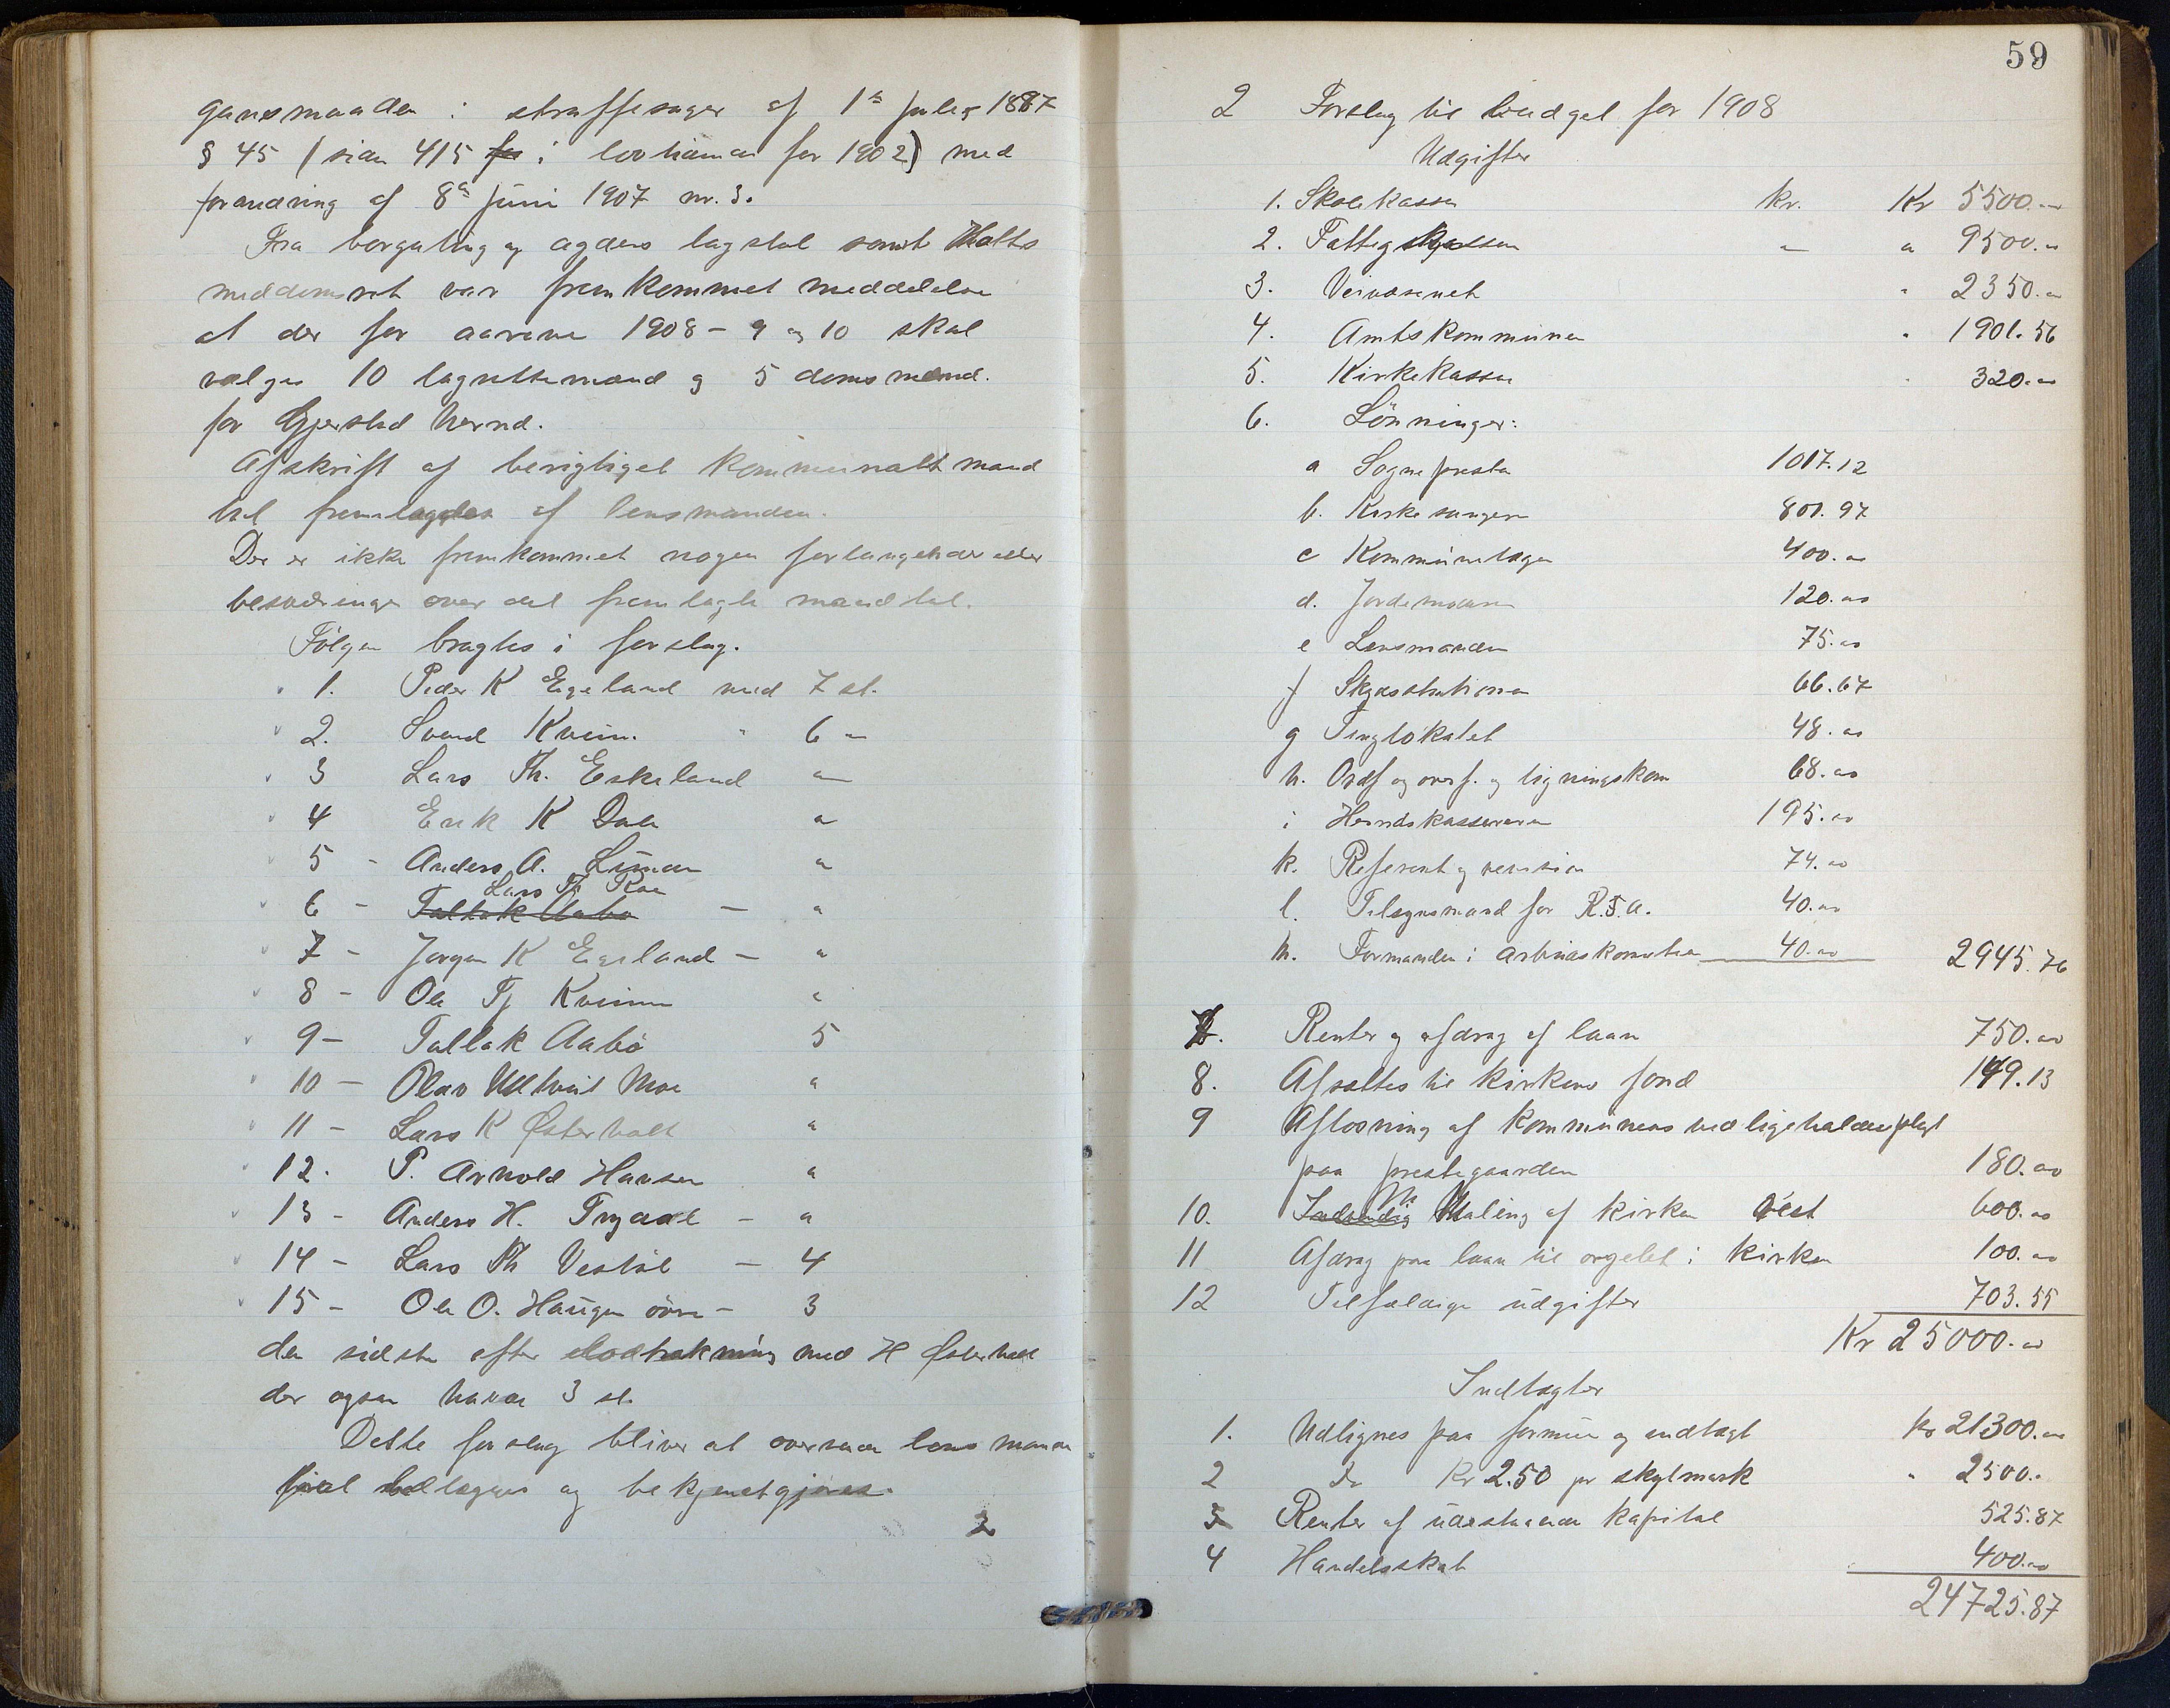 gansmaaden i straffesager af 1ste juli 1887
§ 45 (sian 415 i lovtidenen for 1902) med
forandring af 8de juni 1907 nr. 3.
Fra borgating og agders lagstol samt Holts
meddomsret var fremkommet meddelelse
at der for aarene 1908 - 9 og 10 skal
vælges 10 lagrettemænd og 5 domsmænd.
for Gjerstad herred.
Afskrift af berigtiget kommunalt mand
tal fremlagdes af lensmanden.
Der er ikke fremkommet nogen forlangender eller
besværinger over det fremlagte mandtal.
Følgen bragtes i forslag.
1. Peder K Egeland med 7 st.
2. Svend Kveim. " 6 "
3 Lars Th. Eskeland "
4 Erik K Dale "
5 - Anders A. Lunden "
Lars Th Roe
6 - Tallak Aabø - "
7 - Jørgen K Egeland - "
8 - Ole Tj Kveim "
9 - Tallak Aabø 5
10 - Olav Ulltveit Moe "
11 - Lars K Østerholt "
12. P. Arnold Hansen "
13 - Anders H. Trydal - "
14 - Lars Th Vestøl - 4
15 - Ole O. Haugen øvre - 3
den sidste efter lodtrækning med H Østerholt
der ogsaa havde 3 st.
Dette forslag bliver at oversende lensmanden
til udlæggelse og bekjentgjøres.
2
59
2 Forslag til budget for 1908
Udgifter
1. Skolekassen kr. Kr 5500.00
2. Fattigkassen " " 9500.00
3. Veivæsenet " 2350.00
4. Amtskommunen " 1901.56
5. Kirkekassen " 320.00
6. Lønninger:
a Sognepresten 1017.12
b. Kirkesangeren 801.97
c Kommunelægen 400.00
d. Jordemoderen 120.00
e Lensmanden 75.00
f Skydsstationen 66.67
g Tinglokalet 48.00
h. Ordf og overf. og ligningskom 68.00
i Herredskassereren 195.00
k. Referent og revision 74.00
l. Tilsynsmand for R.F.A. 40.00
m. Formanden i arbeidskomiteen 40.00 2945.76
7. Renter og afdrag af laan 750.00
8. Afsættes til kirkens fond 149.13
9 Afløsning af kommunens vedligeholdelsespligt
paa prestegaarden 180.00
10. Indvendig Maling af kirken 600.00
11 Afdrag paa laan til orgelet i kirken 100.00
12 Tilfældige udgifter 703.55
Kr 25000.00
Indtægter
1. Udlignes paa formue og indtægt Kr 21300.00
2 Do Kr 2.50 pr skylmark " 2500.-
3 Renter af udestaaende kapital 525.87
4 Handelsskat 400.00
24725.87